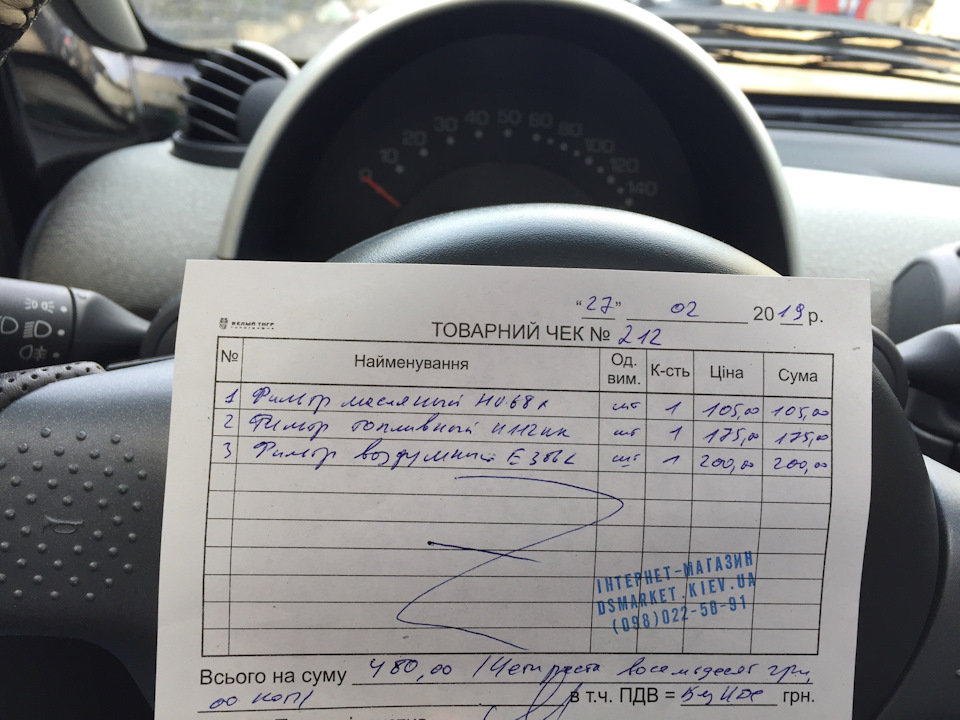 0 10 20 30 40 50 60 80 100 120 140
"27" 02 2019 р.
БЕЛЫЙ ТИГР
ТОВАРНИЙ ЧЕК № 212
№ Найменування Од. вим. К-сть Ціна Сума
1 Фильтр масляный шт 1 105,00 105,00
2 Фильтр топливный шт 1 175,00 175,00
3 Фильтр воздушный шт 1 200,00 200,00
ІНТЕРНЕТ-МАГАЗИН
DSMARKET.KIEV.UA
(098)022-50-91
Всього на суму 480,00 (Четыреста восемьдесят грн,
00 коп) в т.ч. ПДВ = Без НДС грн.